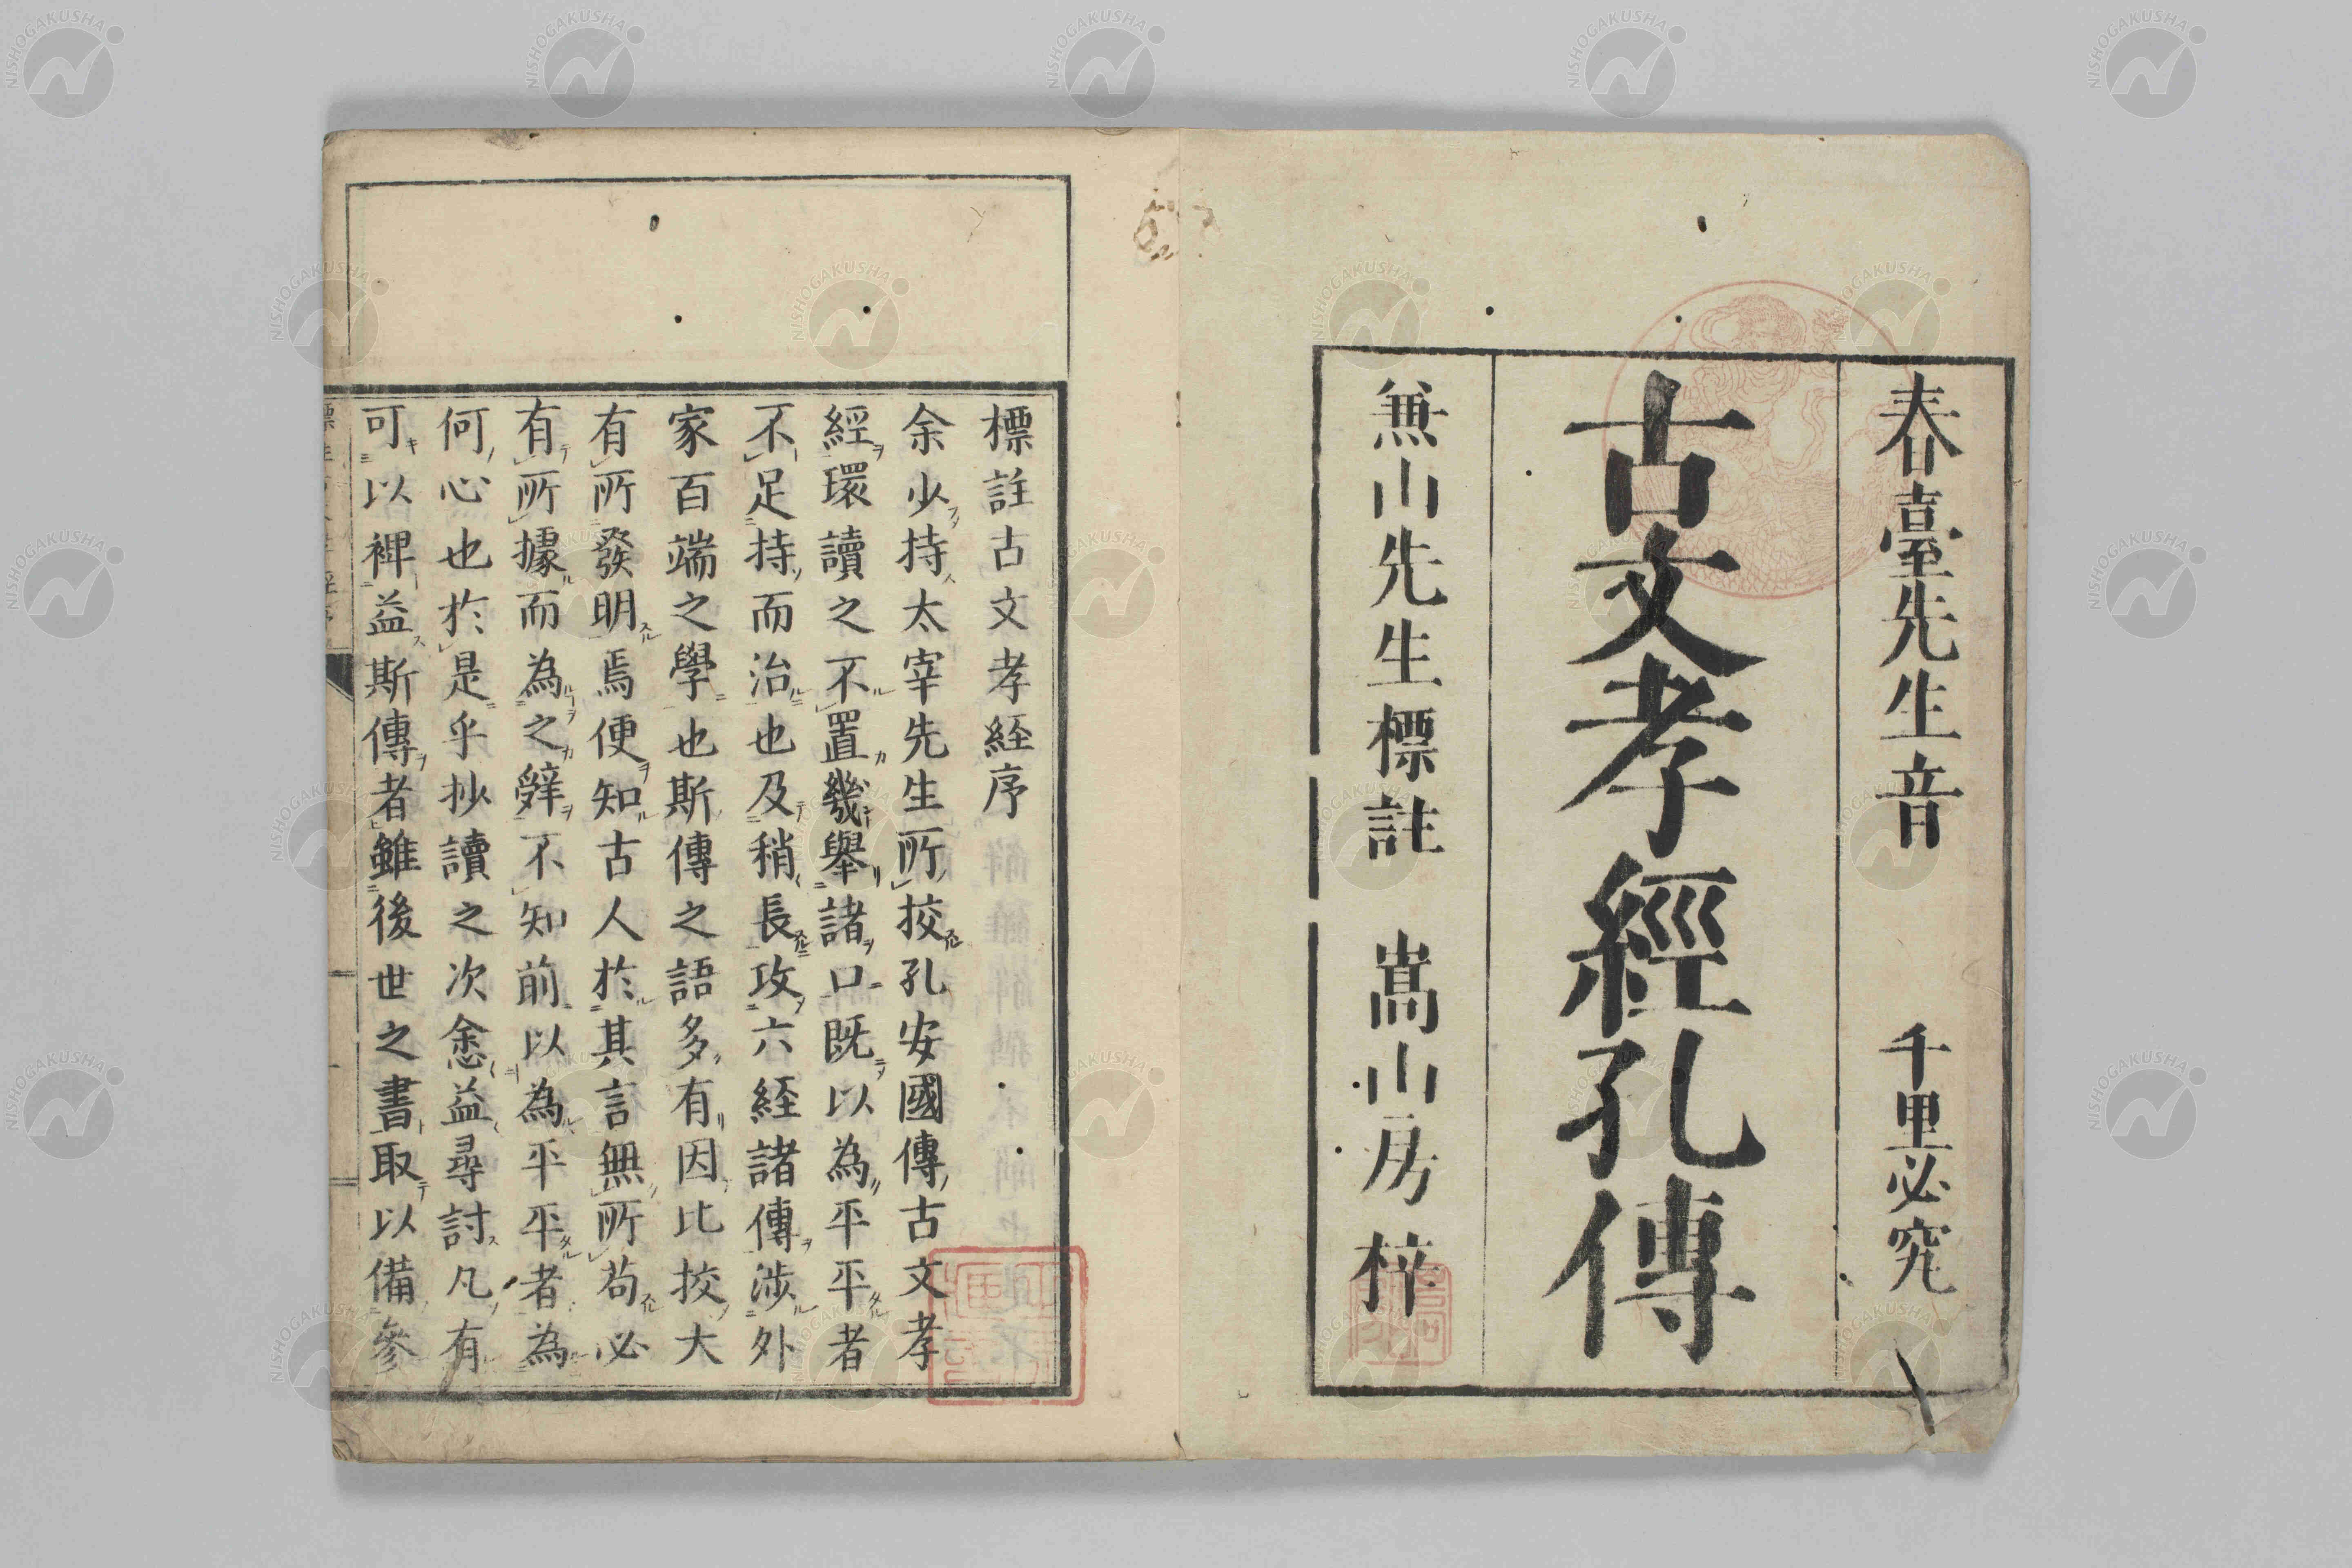 春臺先生音　千里必究
古文孝經孔傳
兼山先生標註　嵩山房梓
標註古文孝経序
余少持太宰先生所挍孔安國傳古文孝
經環讀之不置幾舉諸口既以為平平者
不足持而治也及稍長攻六経諸傳涉外
家百端之學也斯傳之語多有因比挍大
有所發明焉便知古人於其言無所苟必
有所據而為之辤不知前以為平平者為
何心也於是乎抄讀之次悆益尋討凡有
可以裨益斯傳者雖後世之書取以備參
NISHOGAKUSHA